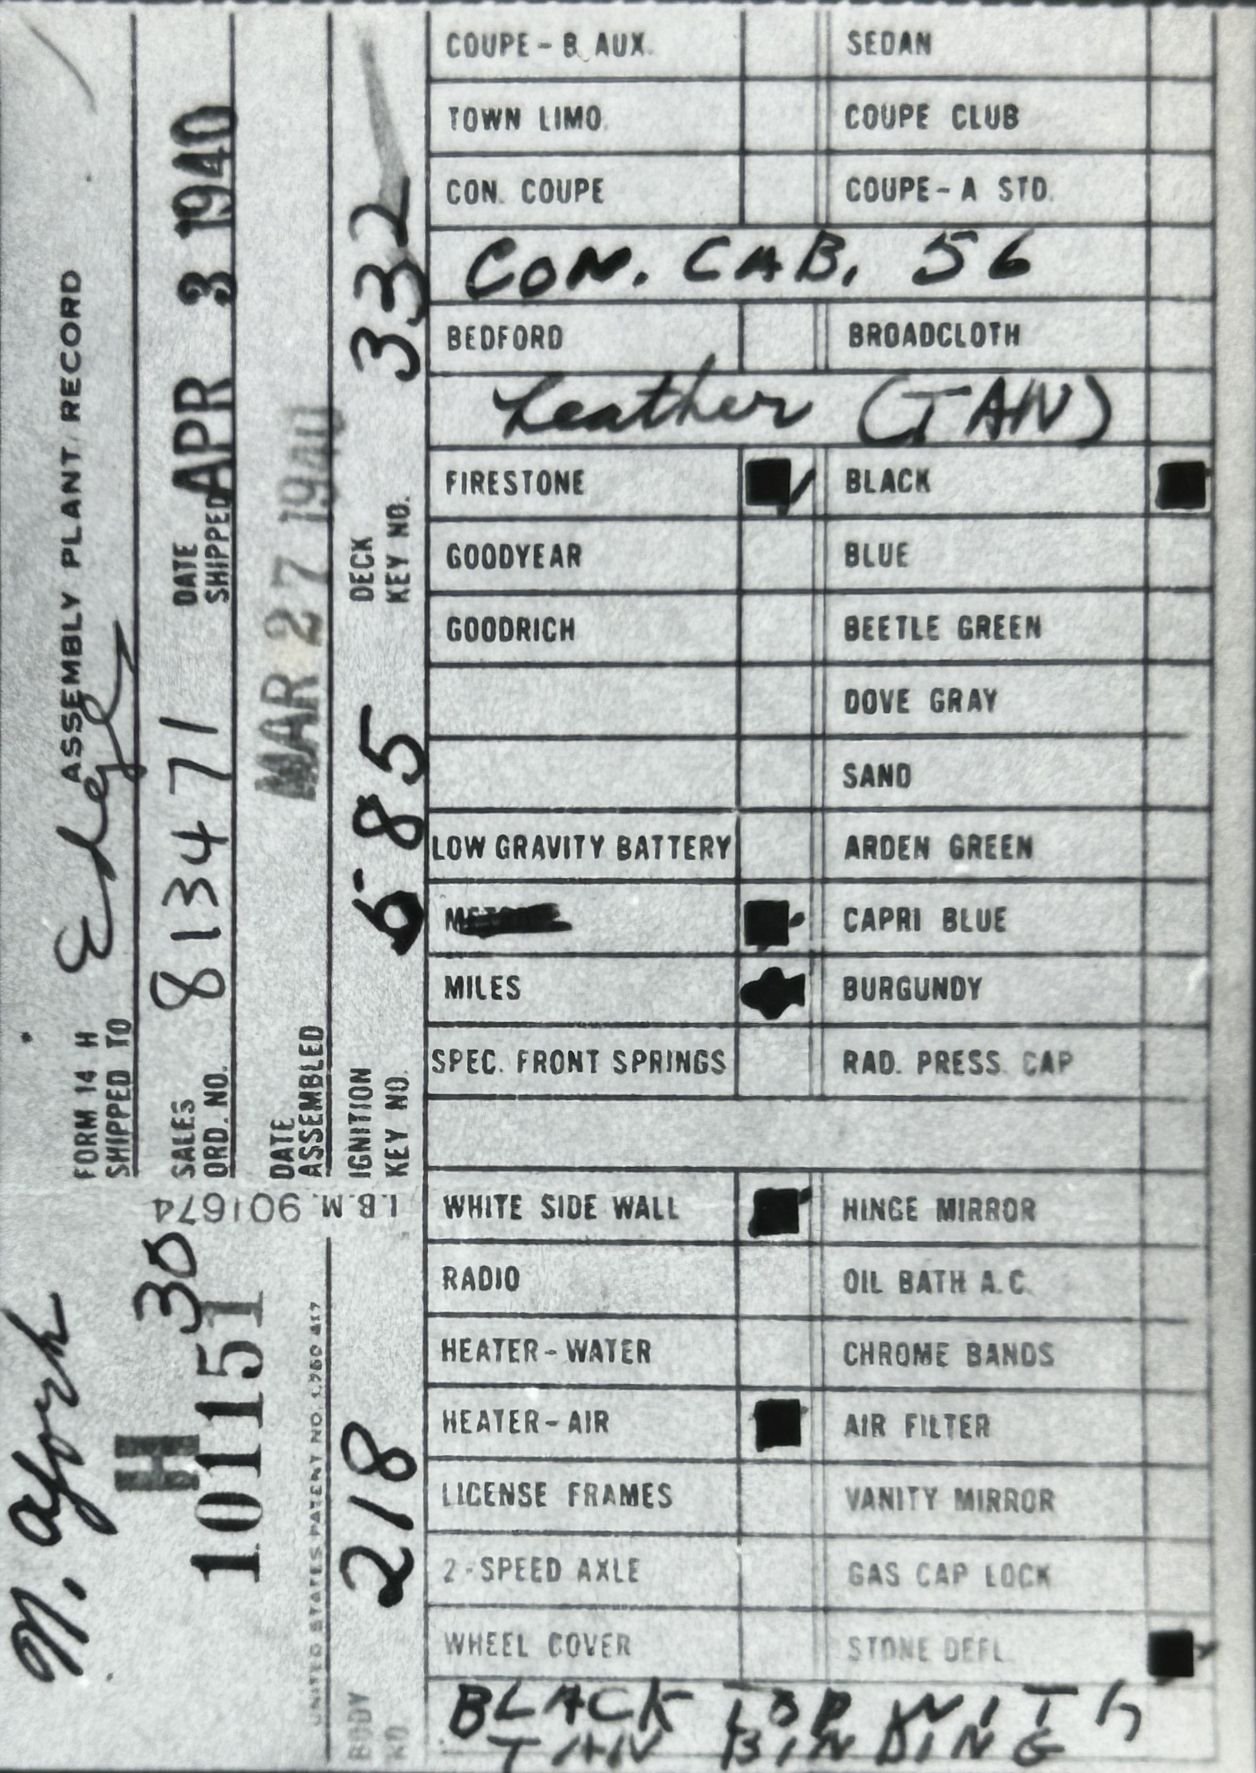 FORM 14 H ASSEMBLY PLANT RECORD
SHIPPED TO Edsel
SALES ORD. NO. 813471 DATE SHIPPED APR 3 1940
DATE ASSEMBLED MAR 27 1940
IGNITION KEY NO. 6585 DECK KEY NO. 332
I.B.M. 901674
N. York
30
H
101151
UNITED STATES PATENT NO. 1,780,417
BODY NO. 218
COUPE - B AUX. SEDAN
TOWN LIMO. COUPE CLUB
CON. COUPE COUPE - A STD.
CON. CAB. 56
BEDFORD BROADCLOTH
Leather (TAN)
FIRESTONE BLACK
GOODYEAR BLUE
GOODRICH BEETLE GREEN
DOVE GRAY
SAND
LOW GRAVITY BATTERY ARDEN GREEN
CAPRI BLUE
MILES BURGUNDY
SPEC. FRONT SPRINGS RAD. PRESS. CAP
WHITE SIDE WALL HINGE MIRROR
RADIO OIL BATH A.C.
HEATER - WATER CHROME BANDS
HEATER - AIR AIR FILTER
LICENSE FRAMES VANITY MIRROR
2 - SPEED AXLE GAS CAP LOCK
WHEEL COVER STONE DEFL.
BLACK TOP WITH
TAN BINDING